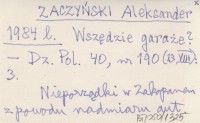 ZACZYŃSKI Aleksander
1984 l. Wszędzie garaże?
– Dz. Pol. 40, nr 190 (13.VIII):
3.
Nieporządki w Zakopanem
z powodu nadmiaru aut.